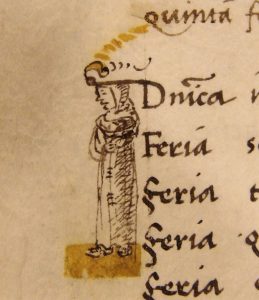 quinta f
Dnica i
Feria s
feria t
feria q
feria